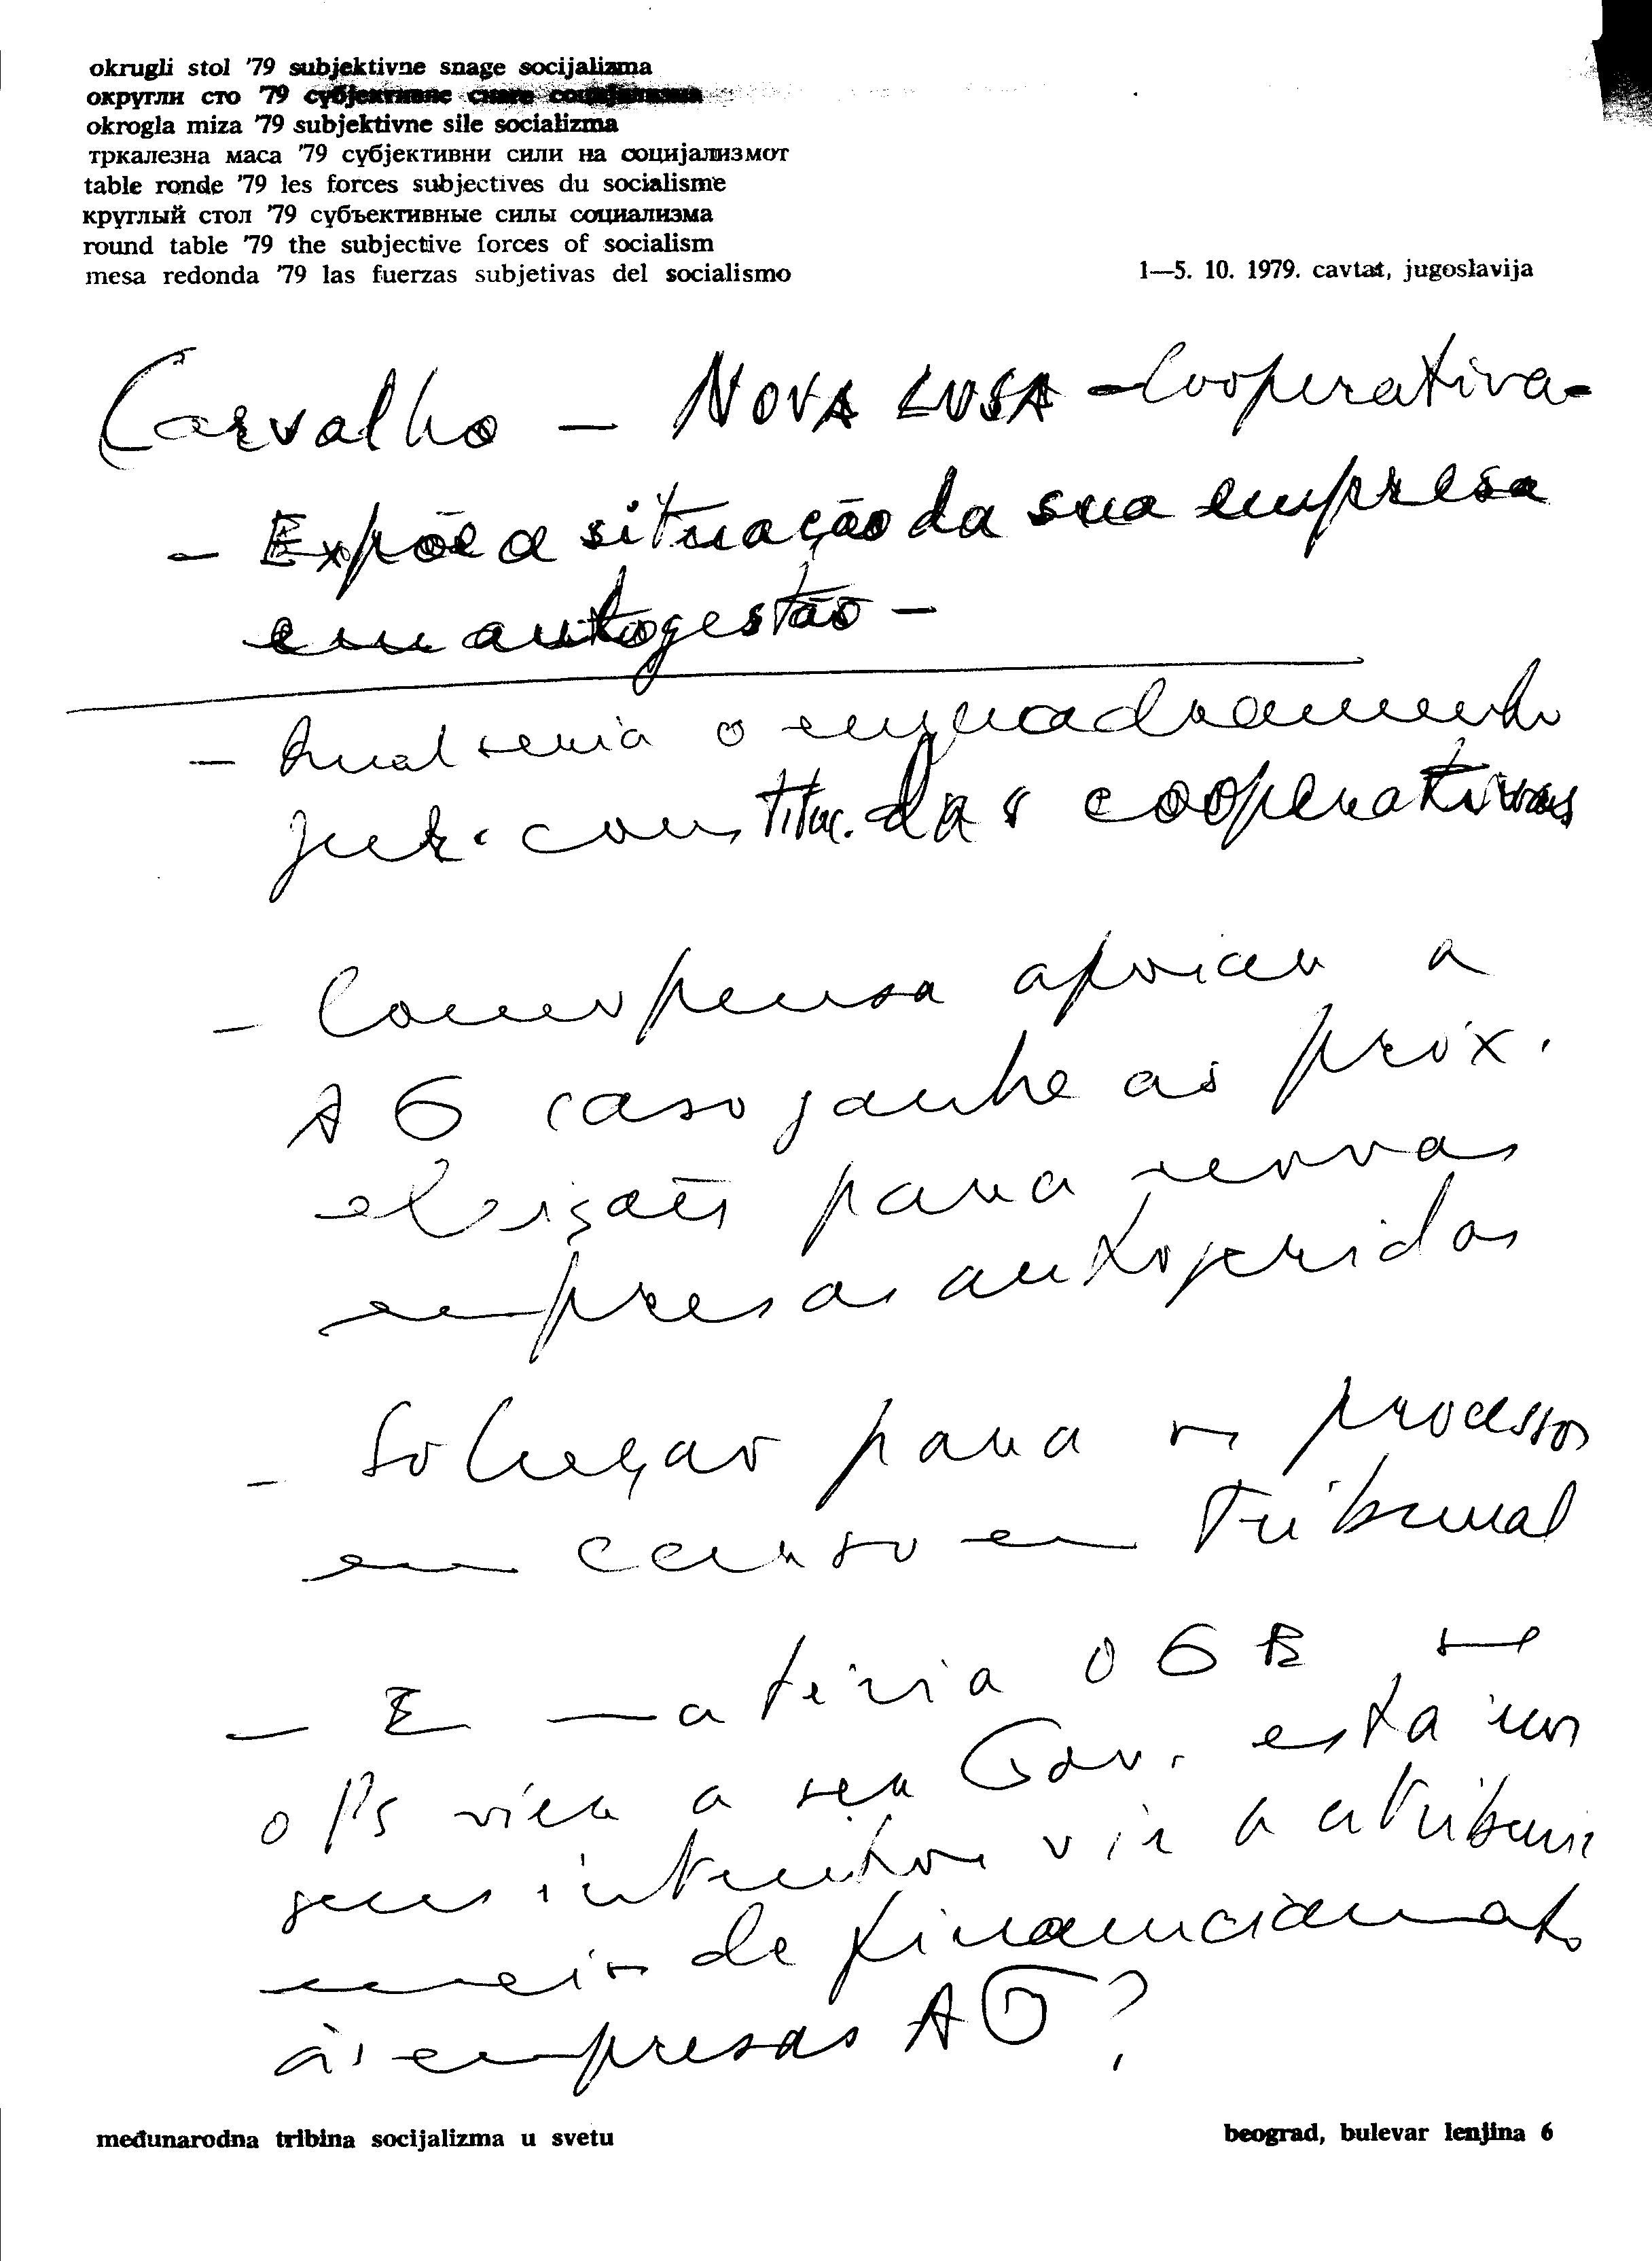 okrugli stol '79 subjektivne snage socijalizma
округли сто '79 субјективне снаге социјализма
okrogla miza '79 subjektivne sile socializma
тркалезна маса '79 субјективни сили на социјализмот
table ronde '79 les forces subjectives du socialisme
круглый стол '79 субъективные силы социализма
round table '79 the subjective forces of socialism
mesa redonda '79 las fuerzas subjetivas del socialismo
1—5. 10. 1979. cavtat, jugoslavija
Carvalho — NOVA LUSA - Cooperativa -
- Expõe a situação da sua empresa
em autogestão -
- Qual seria o enquadramento
jur. constituc. das cooperativas
- Como pensa apoiar a
AG caso ganhe as próx.
eleições para novas
empresas autogeridas
- Solução para os processos
em curso em Tribunal
- Em matéria OGE se
o PS vier a ser Gov. está nos
seus intentos vir a atribuir
meios de financiamento
às empresas AG?
međunarodna tribina socijalizma u svetu
beograd, bulevar lenjina 6